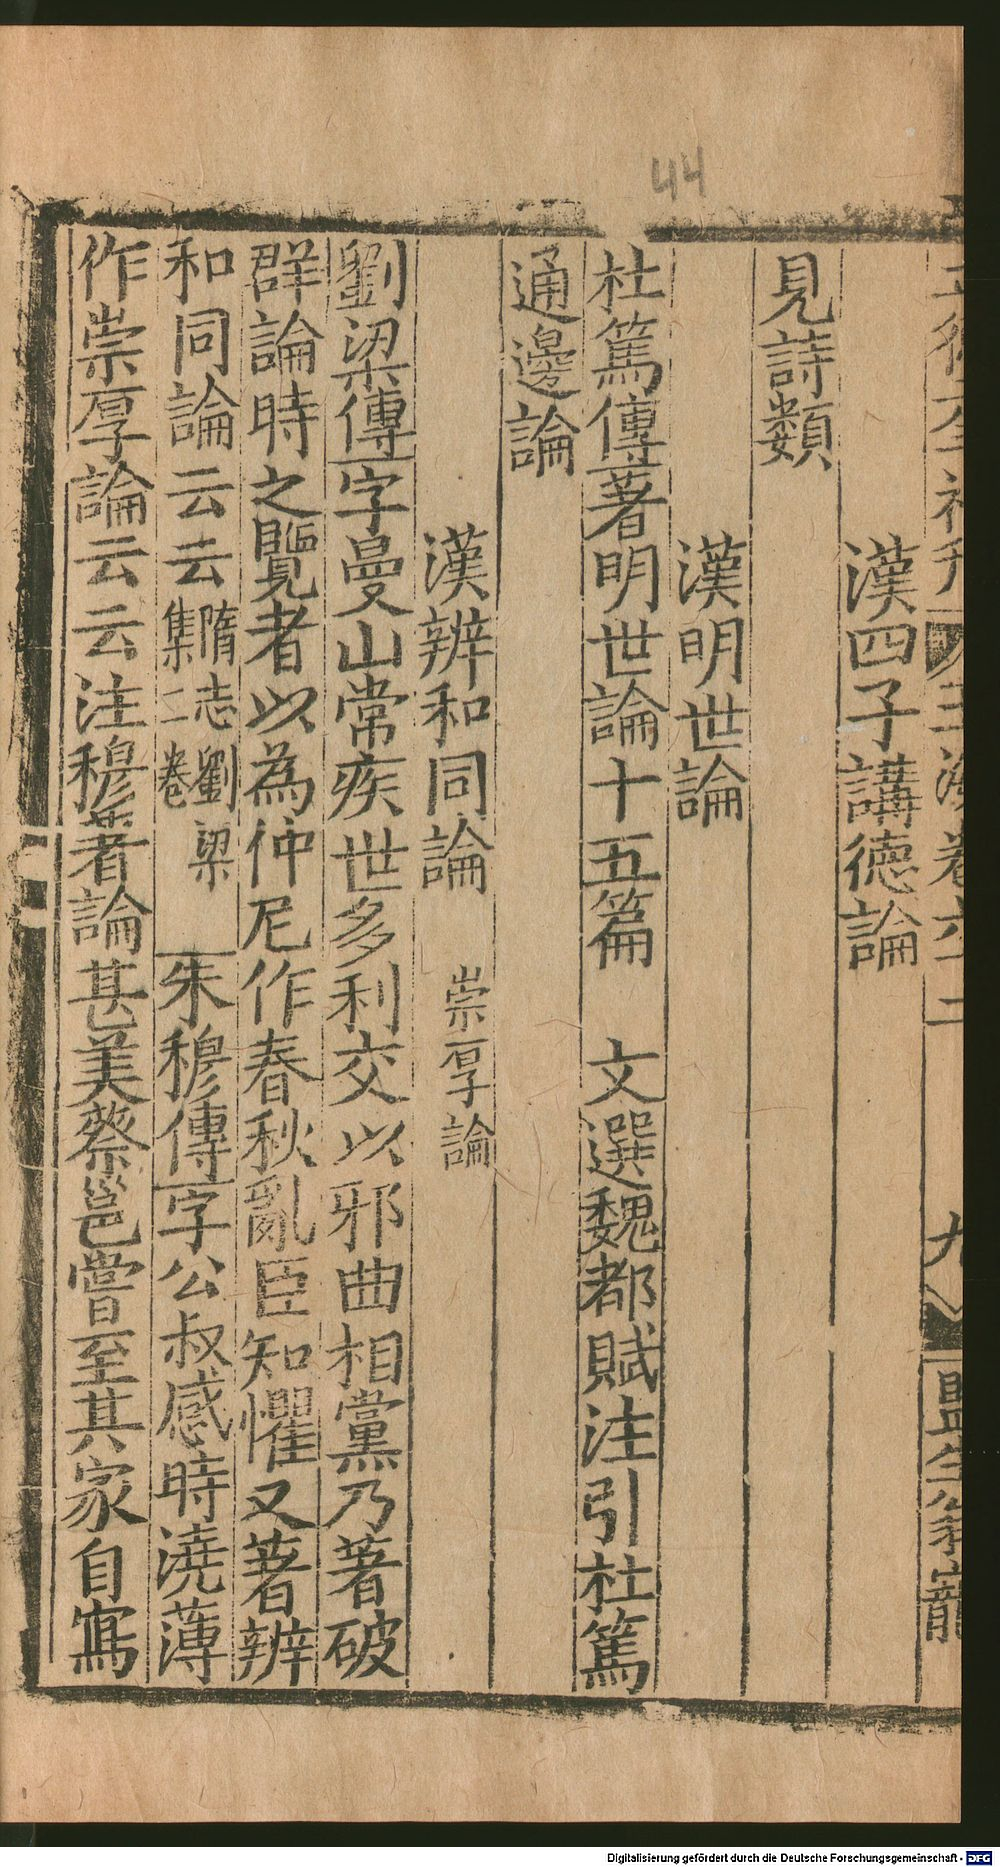 44
漢四子講德論
見詩類
漢明世論
杜篤傳著明世論十五篇 文選魏都賦注引杜篤
通邊論
漢辨和同論 崇厚論
劉梁傳字曼山常疾世多利交以邪曲相黨乃著破
群論時之覽者以為仲尼作春秋亂臣知懼又著辨
和同論云云隋志劉梁集二卷 朱穆傳字公叔感時澆薄
作崇厚論云云注穆著論甚美蔡邕嘗至其家自寫
Digitalisierung gefördert durch die Deutsche Forschungsgemeinschaft - DFG